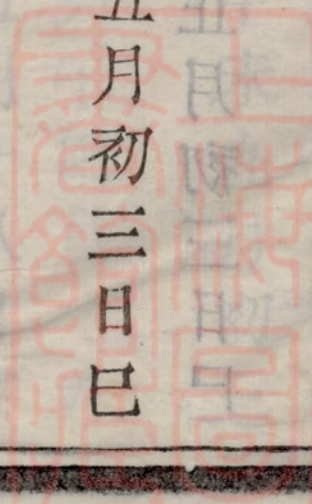 五月初三日巳